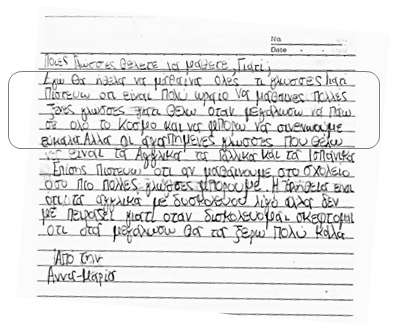 No
Date
Ποιες γλωσσες θελετε να μαθετε, Γιατι;
Εγω θα ηθελα να μαθαινα ολες τι γλωσσες Γιατι
Πιστευω οτι ειναι πολυ ωραιο να μαθαινεις πολλες
ξενες γλωσσες γιατι θελω οταν μεγαλωσω να παω
σε ολο το κοσμο και να μπορω να σινενοουμε
ευκολα. Αλλα οι αγαπημενες γλωσσες που θελω
να ειναι τα Αγγλικα τα Γαλλικα και τα Ισπανικα
Επισης πιστευω οτι αν μαθαινουμε στο σχολειο
οσο πιο πολλες γλωσσες μπορουμε. Η αληθεια ειναι
οτι τα αγγλικα με δυσκολευου λιγο αλλα δεν
με πειραζει γιατι οταν δισκολευομαι σκεφτομαι
οτι οτα μεγαλωσω θα τα ξερω πολυ καλα
Απο την
Αννα-Μαρια